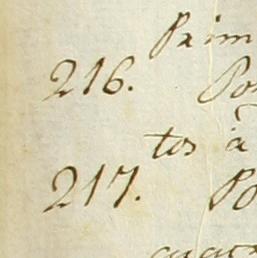 Prim
216. Po
tos à
217. Po